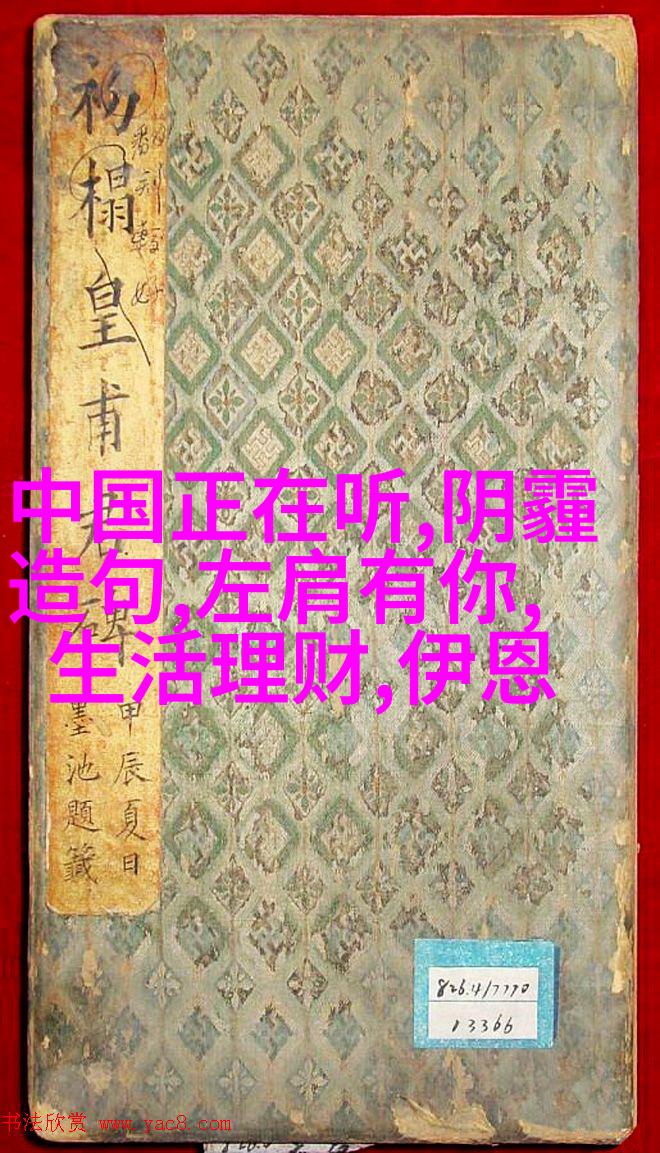 初榻皇甫君碑
翻刻較好
甲辰夏日
墨池題籤
中国正在听,阴霾
造句,左肩有你,
生活理财,伊恩
826.4/7770
13366
书法欣赏 www.yac8.com